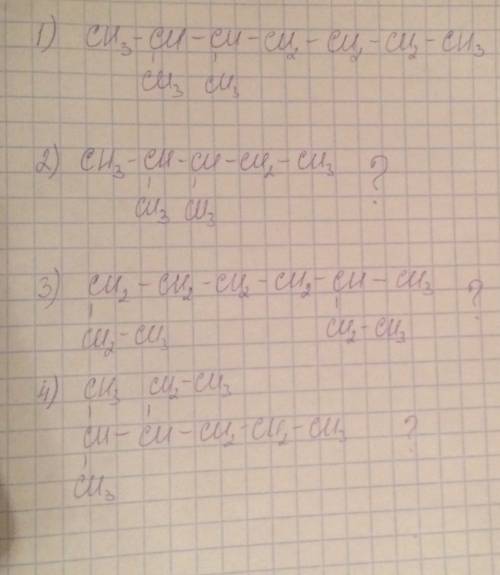 1) CH3 - CH - CH - CH2 - CH2 - CH2 - CH3
CH3 CH3
2) CH3 - CH - CH - CH2 - CH3 ?
CH3 CH3
3) CH2 - CH2 - CH2 - CH2 - CH - CH3 ?
CH2 - CH3 CH2 - CH3
4) CH3 CH2 - CH3
CH - CH - CH2 - CH2 - CH3 ?
CH3